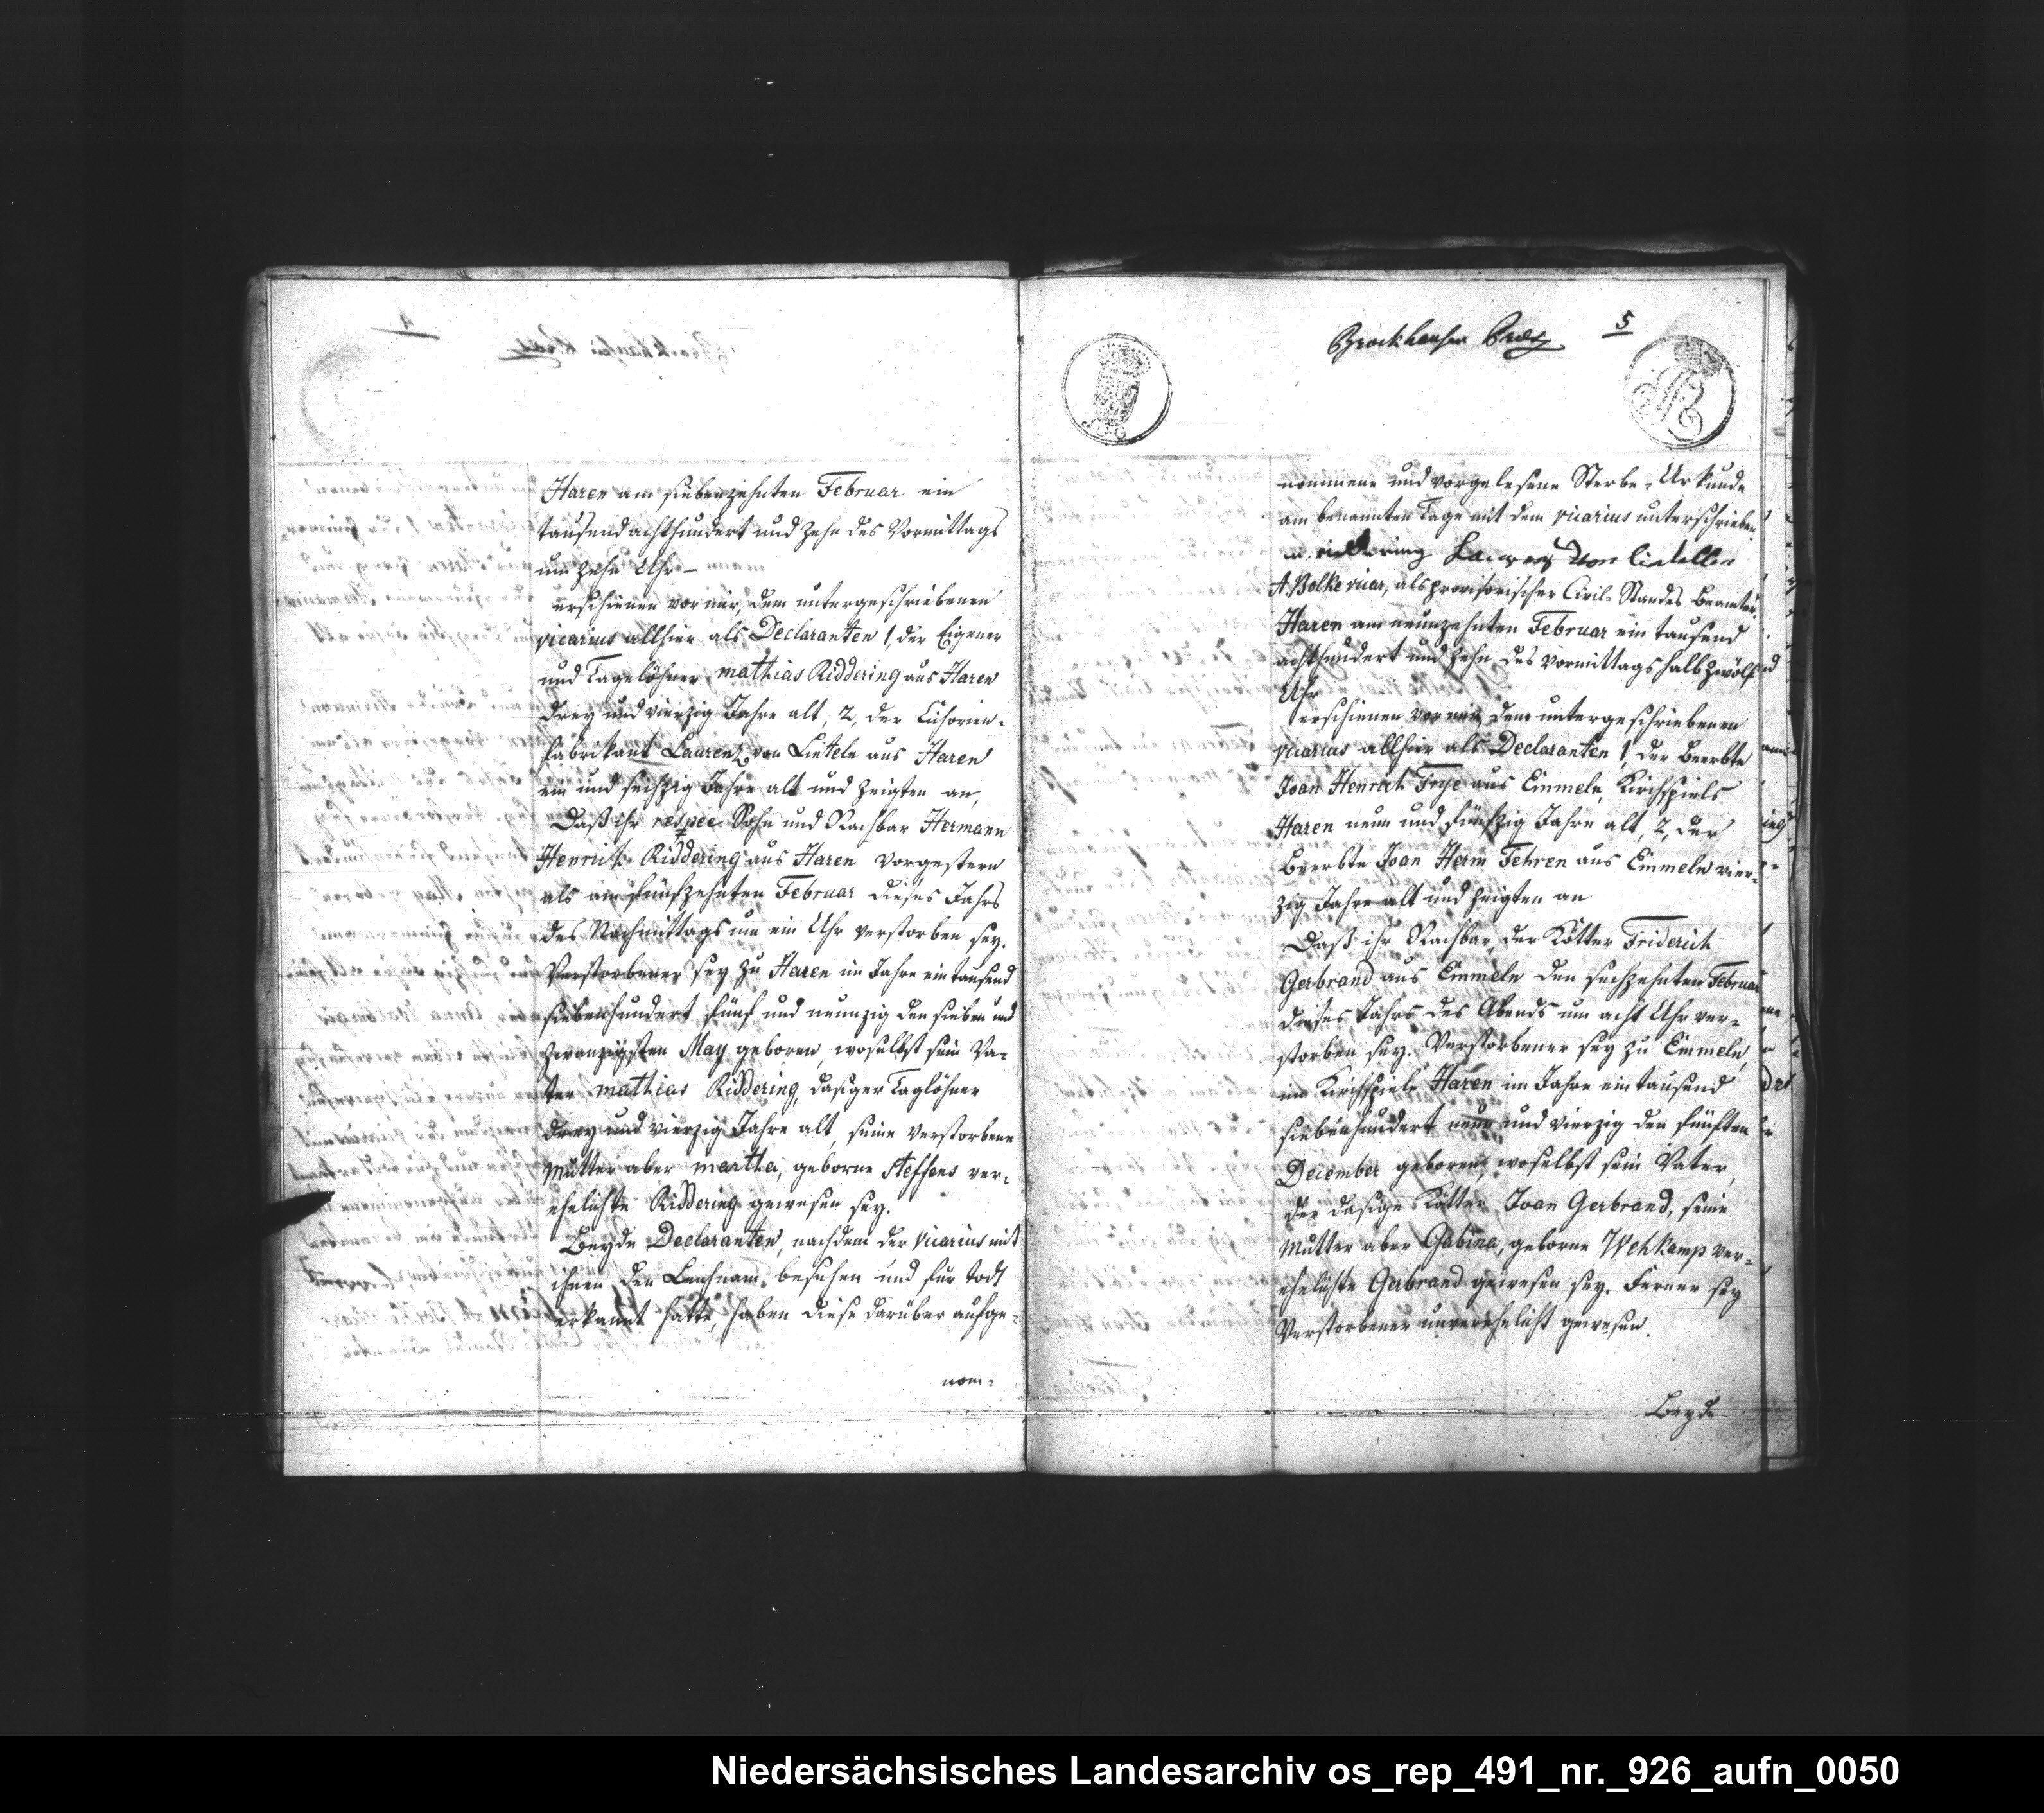 Haren am siebenzehnten Februar ein
tausend achthundert und zehn des Vormittags
um zehn Uhr –
erschienen vor mir, dem untergeschriebenen
vicarius allhier als Declaranten 1, der Eigener
und Tagelöhner mathias Riddering aus Haren
drey und vierzig Jahre alt, 2, der Cichorien-
fabrikant Laurenz von Lietele aus Haren
ein und sechszig Jahre alt und zeigten an,
Daß ihr respec. Sohn und Nachbar Hermann
Henrich Riddering aus Haren vorgestern
als am fünfzehnten Februar dieses Jahrs
des Nachmittags um ein Uhr verstorben sey.
Verstorbener sey zu Haren im Jahre ein tausend
siebenhundert fünf und neunzig den sieben und
zwanzigsten May geboren, woselbst sein Va-
ter mathias Riddering, dasiger Taglöhner
drey und vierzig Jahre alt, seine verstorbene
Mutter aber martha, geborne Steffens ver-
ehelichte Riddering gewesen sey.
Beyde Declaranten, nachdem der Vicarius mit
ihnen den Leichnam besehen und für todt
erkannt hatte, haben diese darüber aufge-
nom-
Brockhausen 5
nommene und vorgelesene Sterbe-Urkunde
am benannten Tage mit dem vicarius unterschrieben.
m. riddering von
A. Bolke vicar, als provisorischer Civil-Standes Beamter
Haren am neunzehnten Februar ein tausend
achthundert und zehn des Vormittags halb zwölf
Uhr
erschienen vor mir, dem untergeschriebenen
vicarius allhier als Declaranten 1, der Beerbte
Joan Henrich Frye aus Emmeln, Kirchspiels
Haren neun und fünfzig Jahre alt, 2, der
Beerbte Joan Herm Fehren aus Emmeln vier-
zig Jahre alt und zeigten an
Daß ihr Nachbar, der Kötter Friderich
Gerbrand aus Emmeln den sechzehnten Februar
dieses Jahrs des Abends um acht Uhr ver-
storben sey. Verstorbener sey zu Emmeln,
im Kirchspiele Haren im Jahre ein tausend
siebenhundert neun und vierzig den fünften
December geboren, woselbst sein Vater,
der dasige Kötter Joan Gerbrand, seine
Mutter aber Gabina, geborne Wehkamp ver-
ehelichte Gerbrand gewesen sey. Ferner sey
Verstorbener unverehelicht gewesen.
Beyde
Niedersächsisches Landesarchiv os_rep_491_nr._926_aufn_0050